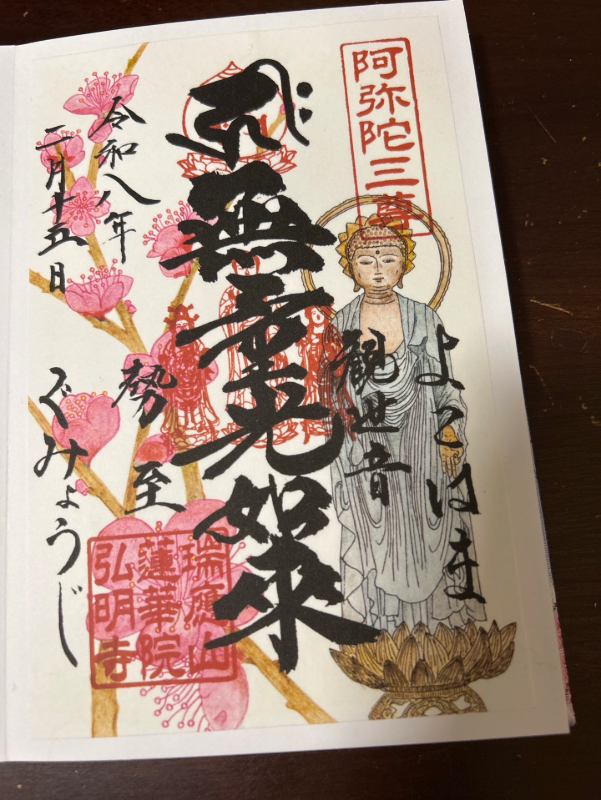 阿弥陀三尊
よこはま
観世音
無量光如來
勢至
ぐみょうじ
令和八年
二月十五日
瑞應山
蓮華院
弘明寺